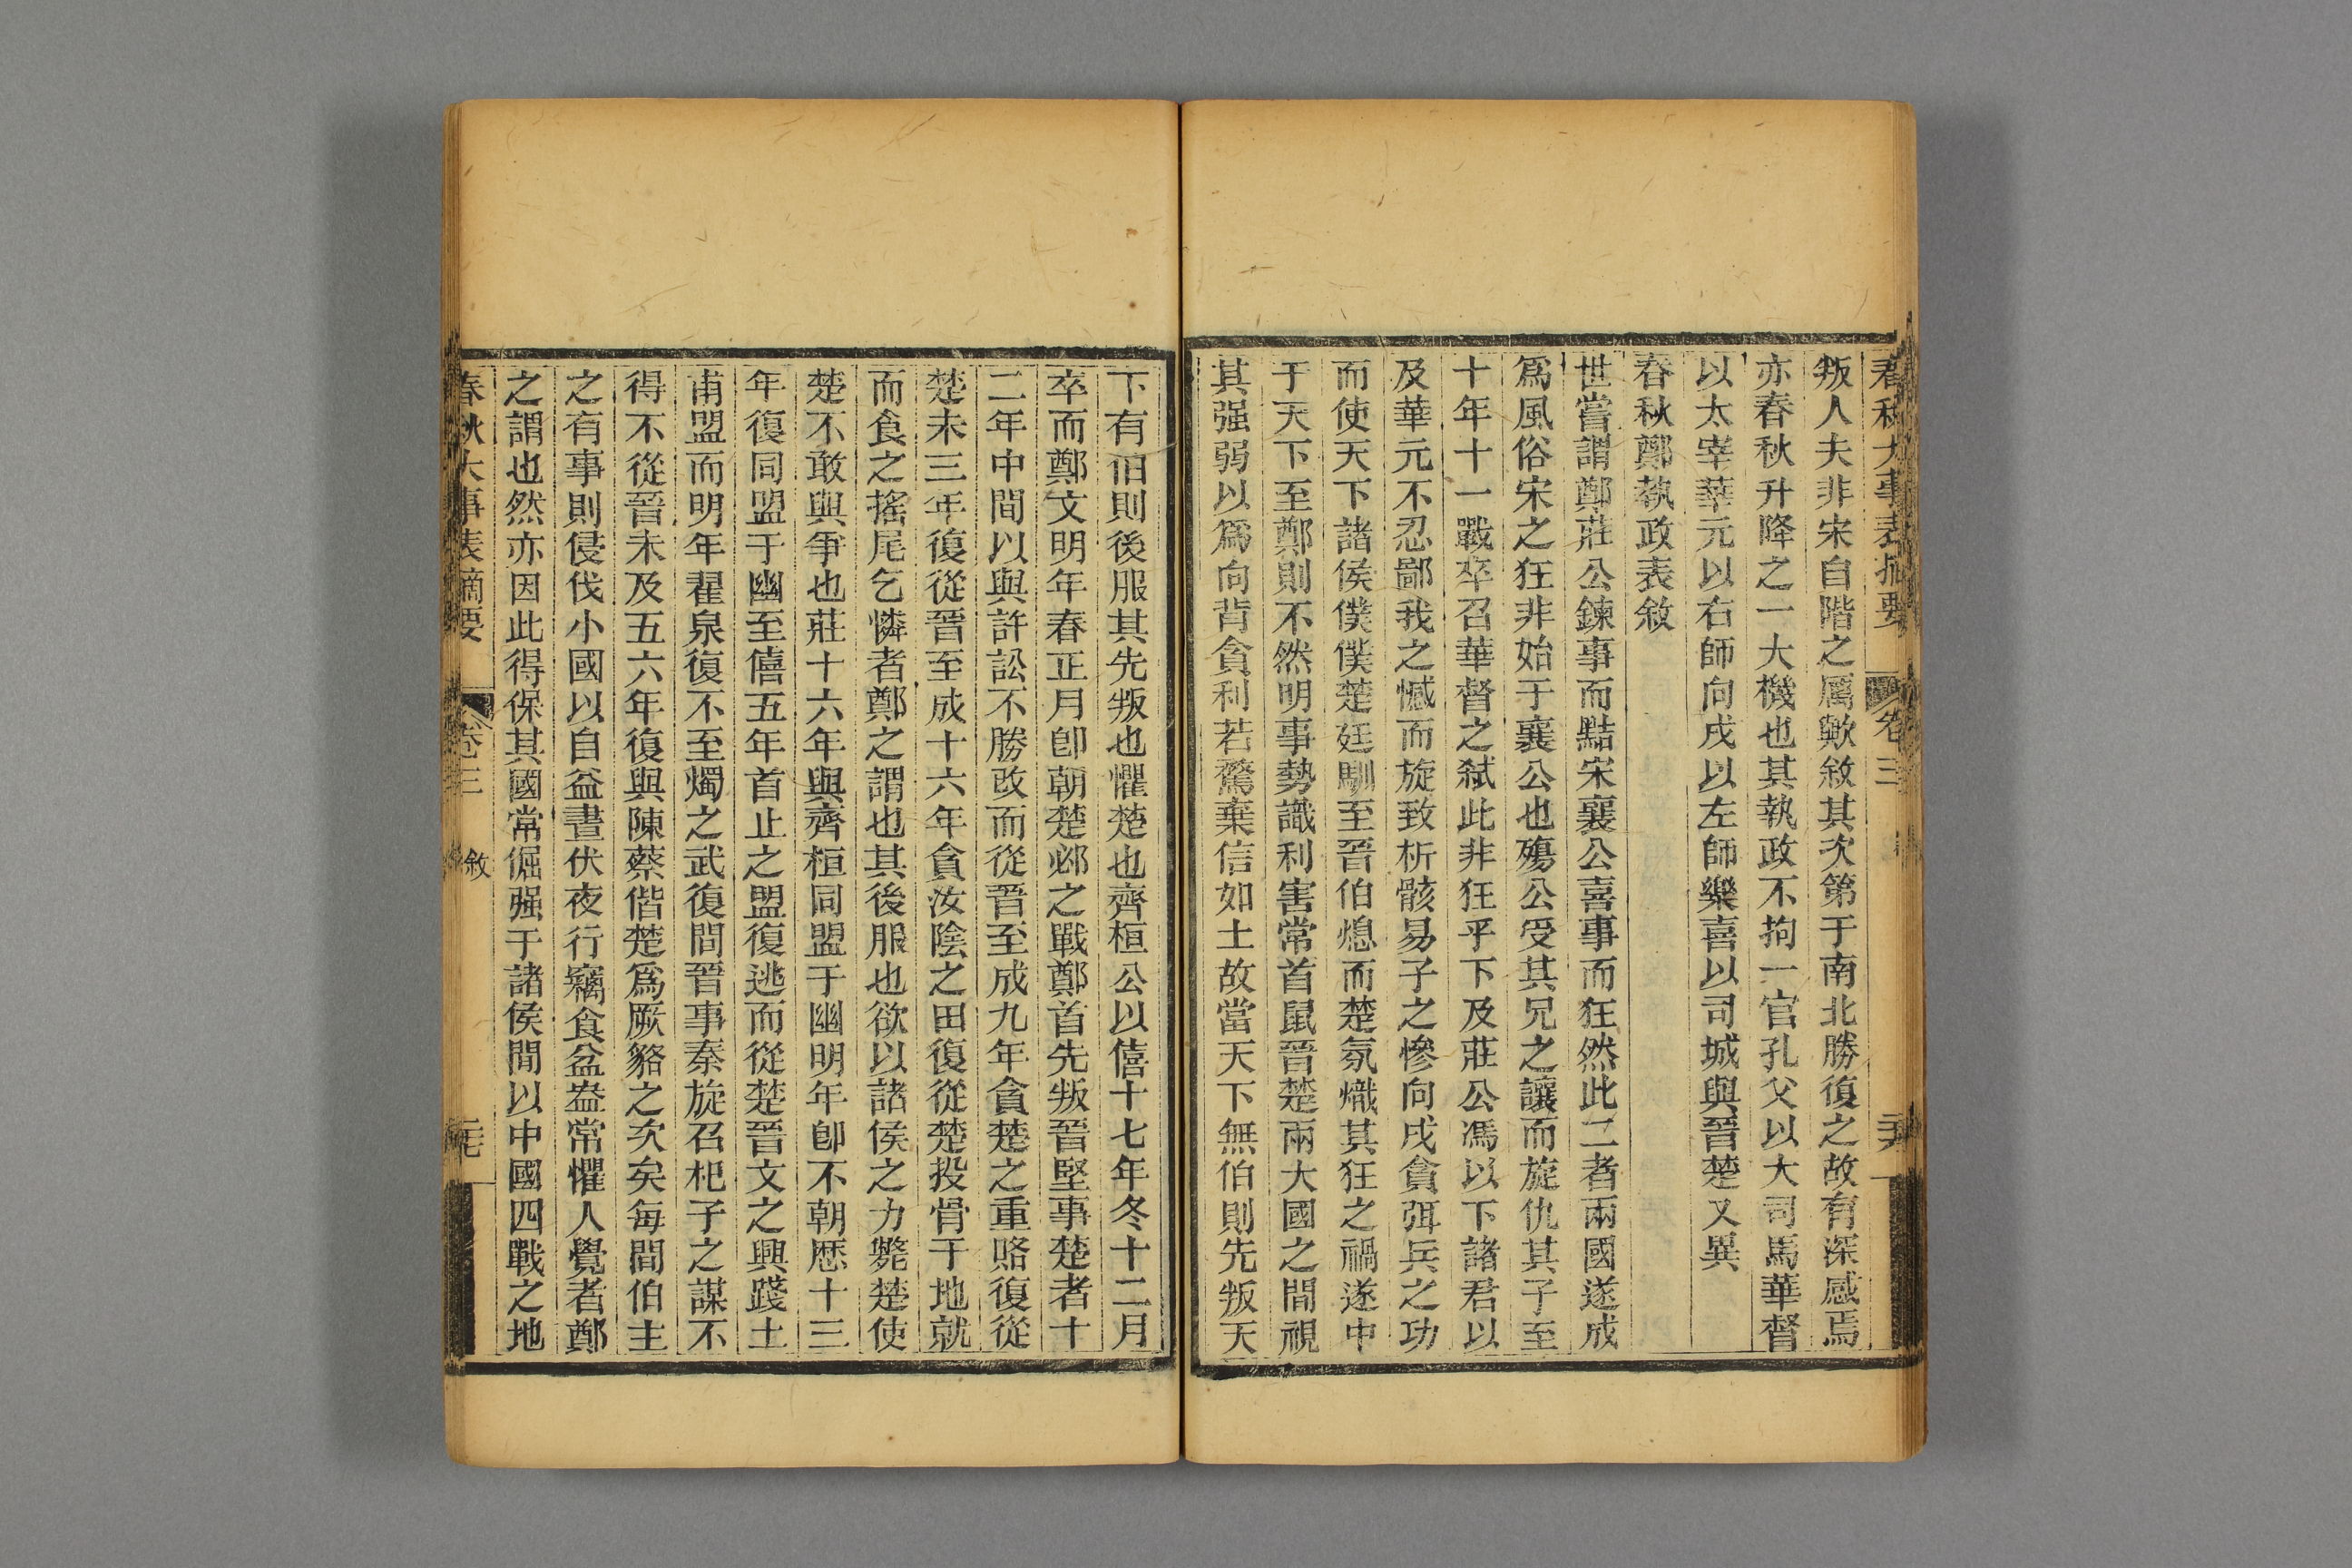 春秋大事表摘要 卷三
叛人夫非宋自階之厲歟敘其次第于南北勝復之故有深感焉
亦春秋升降之一大機也其執政不拘一官孔父以大司馬華督
以太宰華元以右師向戌以左師樂喜以司城與晉楚又異
春秋鄭執政表敘
世嘗謂鄭莊公鍊事而黠宋襄公喜事而狂然此二者兩國遂成
爲風俗宋之狂非始于襄公也殤公受其兄之讓而旋仇其子至
十年十一戰卒召華督之弒此非狂乎下及莊公馮以下諸君以
及華元不忍鄙我之憾而旋致析骸易子之慘向戌貪弭兵之功
而使天下諸侯僕僕楚廷馴至晉伯熄而楚氛熾其狂之禍遂中
于天下至鄭則不然明事勢識利害常首鼠晉楚兩大國之間視
其强弱以爲向背貪利若鶩棄信如土故當天下無伯則先叛天
下有伯則後服其先叛也懼楚也齊桓公以僖十七年冬十二月
卒而鄭文明年春正月卽朝楚邲之戰鄭首先叛晉堅事楚者十
二年中間以與許訟不勝改而從晉至成九年貪楚之重賂復從
楚未三年復從晉至成十六年貪汝陰之田復從楚投骨于地就
而食之搖尾乞憐者鄭之謂也其後服也欲以諸侯之力斃楚使
楚不敢與爭也莊十六年與齊桓同盟于幽明年卽不朝歴十三
年復同盟于幽至僖五年首止之盟復逃而從楚晉文之興踐土
甫盟而明年翟泉復不至燭之武復間晉事秦旋召杞子之謀不
得不從晉未及五六年復與陳蔡偕楚爲厥貉之次矣每間伯主
之有事則侵伐小國以自益晝伏夜行竊食盆盎常懼人覺者鄭
之謂也然亦因此得保其國常倔强于諸侯間以中國四戰之地
春秋大事表摘要 卷三 敘